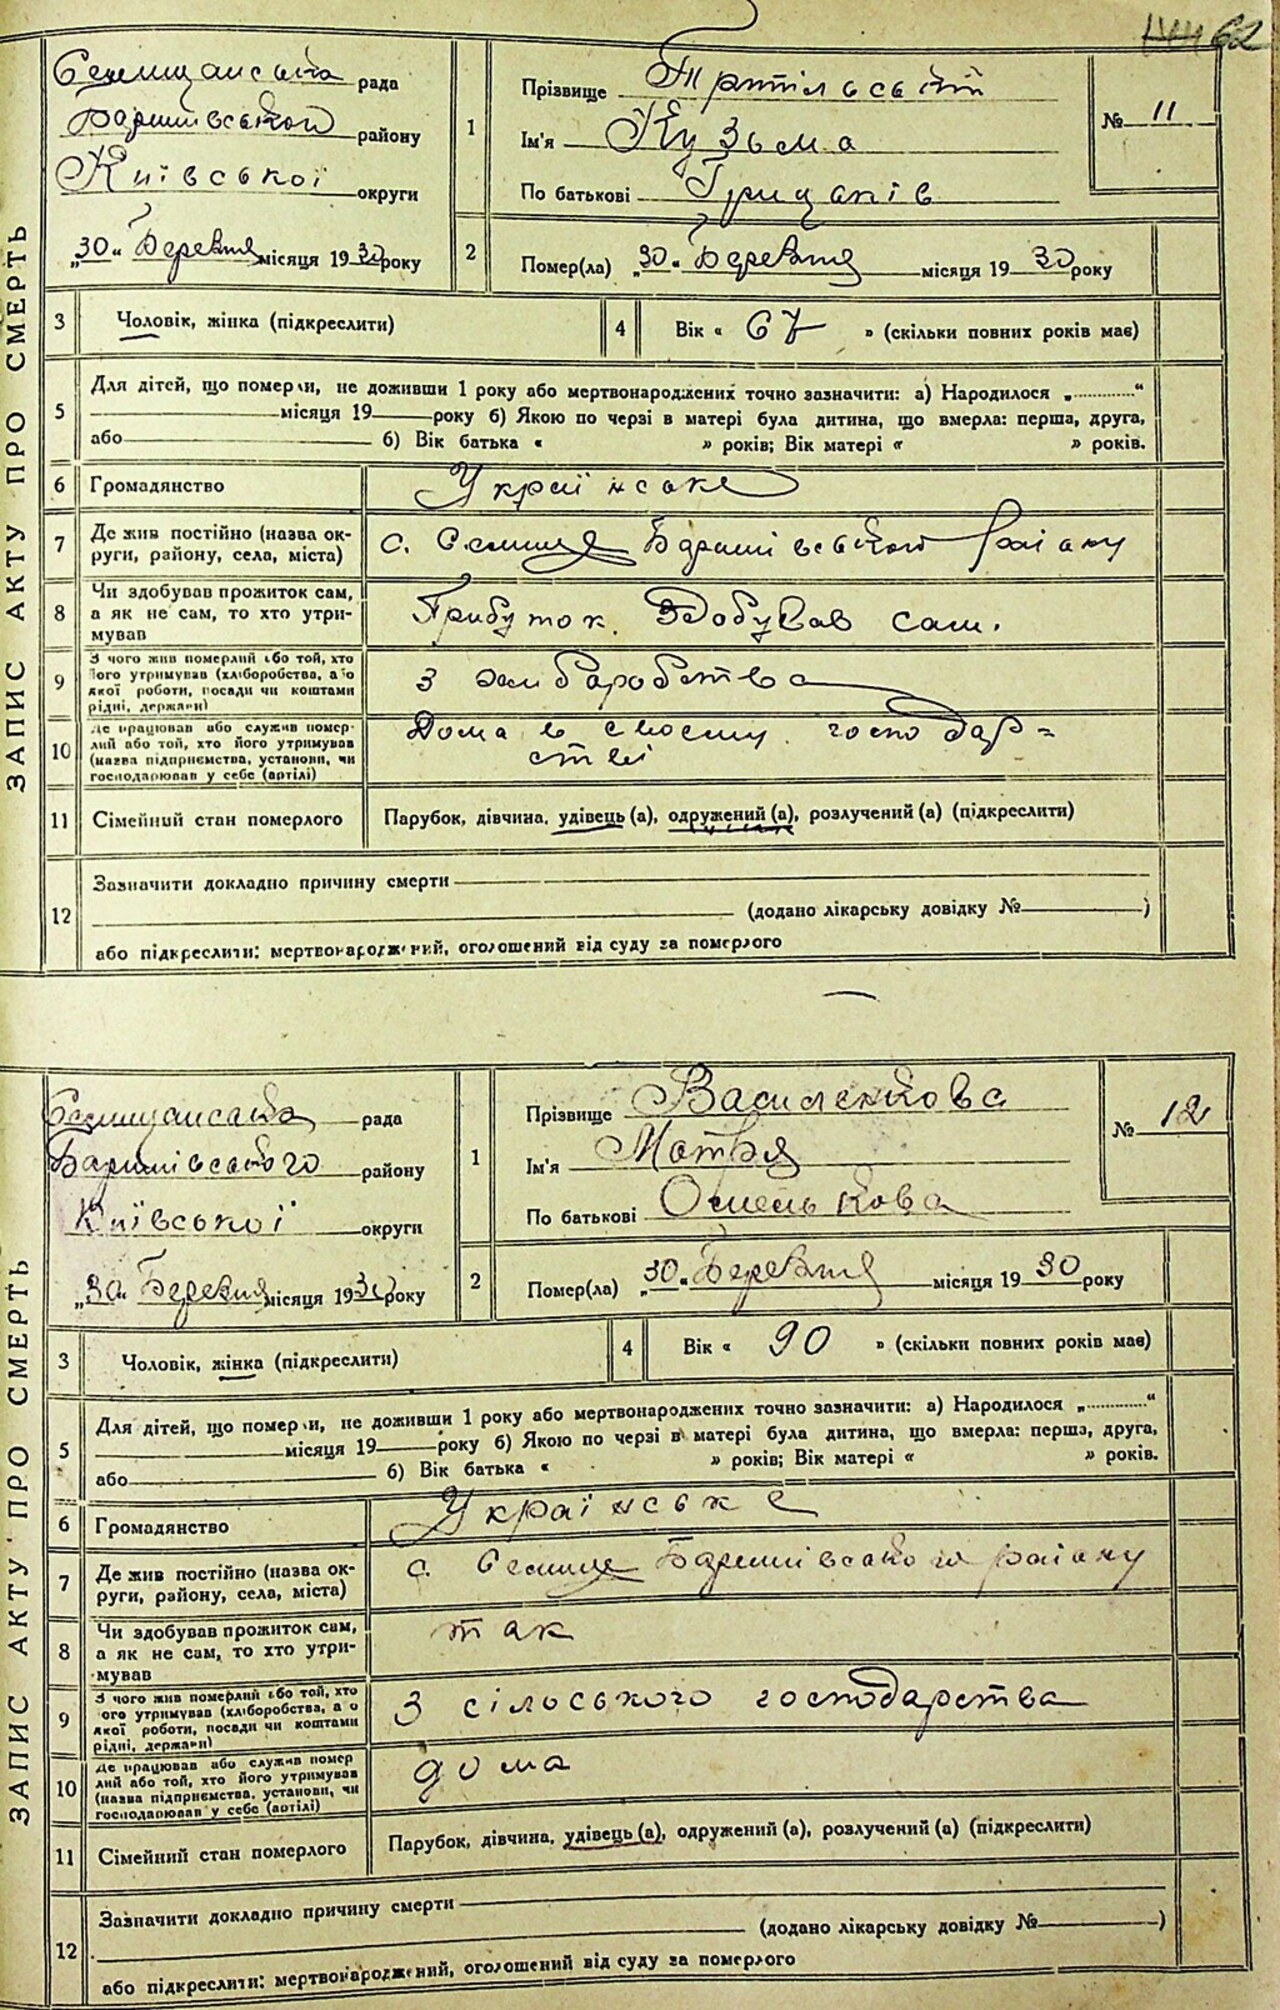 62
ЗАПИС АКТУ ПРО СМЕРТЬ
Селищанська рада
Баришівської району
Київської округи
„30“ Березня місяця 1930 року
1
Прізвище
Ім'я Кузьма
По батькові Грицанів
№ 11
2
Помер(ла) „30“ Березня місяця 1930 року
3
Чоловік, жінка (підкреслити)
4
Вік « 67 » (скільки повних років має)
5
Для дітей, що померли, не доживши 1 року або мертвонароджених точно зазначити: а) Народилося „............“
місяця 19 року б) Якою по черзі в матері була дитина, що вмерла: перша, друга,
або б) Вік батька « » років; Вік матері « » років.
6
Громадянство Українське
7
Де жив постійно (назва ок-
руги, району, села, міста)
с. Селище Баришівської району
8
Чи здобував прожиток сам,
а як не сам, то хто утри-
мував
Прибуток здобував сам.
9
З чого жив померлий або той, хто
його утримував (хліборобства, або
якої роботи, посади чи коштами
рідні, держави)
з хліборобства
10
Де працював або служив помер-
лий або той, хто його утримував
(назва підприємства, установи, чи
господарював у себе (артілі)
Дома в своєму господар=
стві
11
Сімейний стан померлого
Парубок, дівчина, удівець (а), одружений (а), розлучений (а) (підкреслити)
12
Зазначити докладно причину смерти
(додано лікарську довідку № )
або підкреслити: мертвонароджений, оголошений від суду за померлого
ЗАПИС АКТУ ПРО СМЕРТЬ
Селищанська рада
Баришівського району
Київської округи
„30“ Березня місяця 1930 року
1
Прізвище Василенкова
Ім'я Мотря
По батькові Омелькова
№ 12
2
Помер(ла) „30“ Березня місяця 1930 року
3
Чоловік, жінка (підкреслити)
4
Вік « 90 » (скільки повних років має)
5
Для дітей, що померли, не доживши 1 року або мертвонароджених точно зазначити: а) Народилося „............“
місяця 19 року б) Якою по черзі в матері була дитина, що вмерла: перша, друга,
або б) Вік батька « » років; Вік матері « » років.
6
Громадянство Українське
7
Де жив постійно (назва ок-
руги, району, села, міста)
с. Селище Баришівського району
8
Чи здобував прожиток сам,
а як не сам, то хто утри-
мував
так
9
З чого жив померлий або той, хто
його утримував (хліборобства, або
якої роботи, посади чи коштами
рідні, держави)
З сілоського господарства
10
Де працював або служив помер
лий або той, хто його утримував
(назва підприємства, установи, чи
господарював у себе (артілі)
дома
11
Сімейний стан померлого
Парубок, дівчина, удівець (а), одружений (а), розлучений (а) (підкреслити)
12
Зазначити докладно причину смерти
(додано лікарську довідку № )
або підкреслити: мертвонароджений, оголошений від суду за померлого